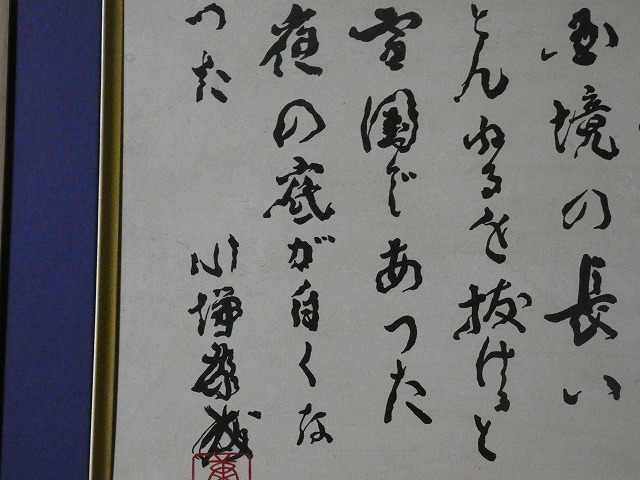 国境の長い
とんねるを抜けると
雪國であつた
夜の底が白くな
つた
川端康成